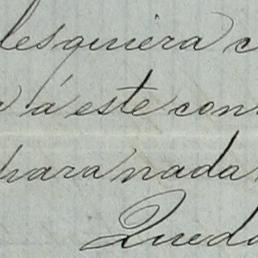 lesquiera c
á este con
para nada
Queda